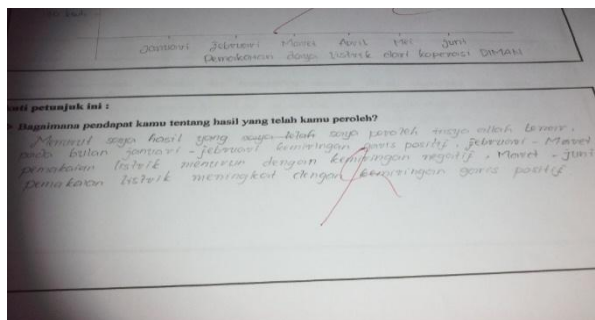 Januari Februari Maret April Mei Juni
Pemakaian daya listrik dari koperasi DIMAN
petunjuk ini :
Bagaimana pendapat kamu tentang hasil yang telah kamu peroleh?
Menurut saya hasil yang saya telah saya peroleh insya allah benar.
pada bulan januari - februari kemiringan garis positif, februari - Maret
pemakaian listrik menurun dengan kemiringan negatif, Maret - juni
pemakaian listrik meningkat dengan kemiringan garis positif